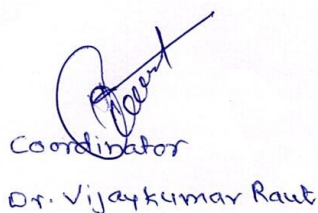 Coordinator
Dr. Vijaykumar Raut